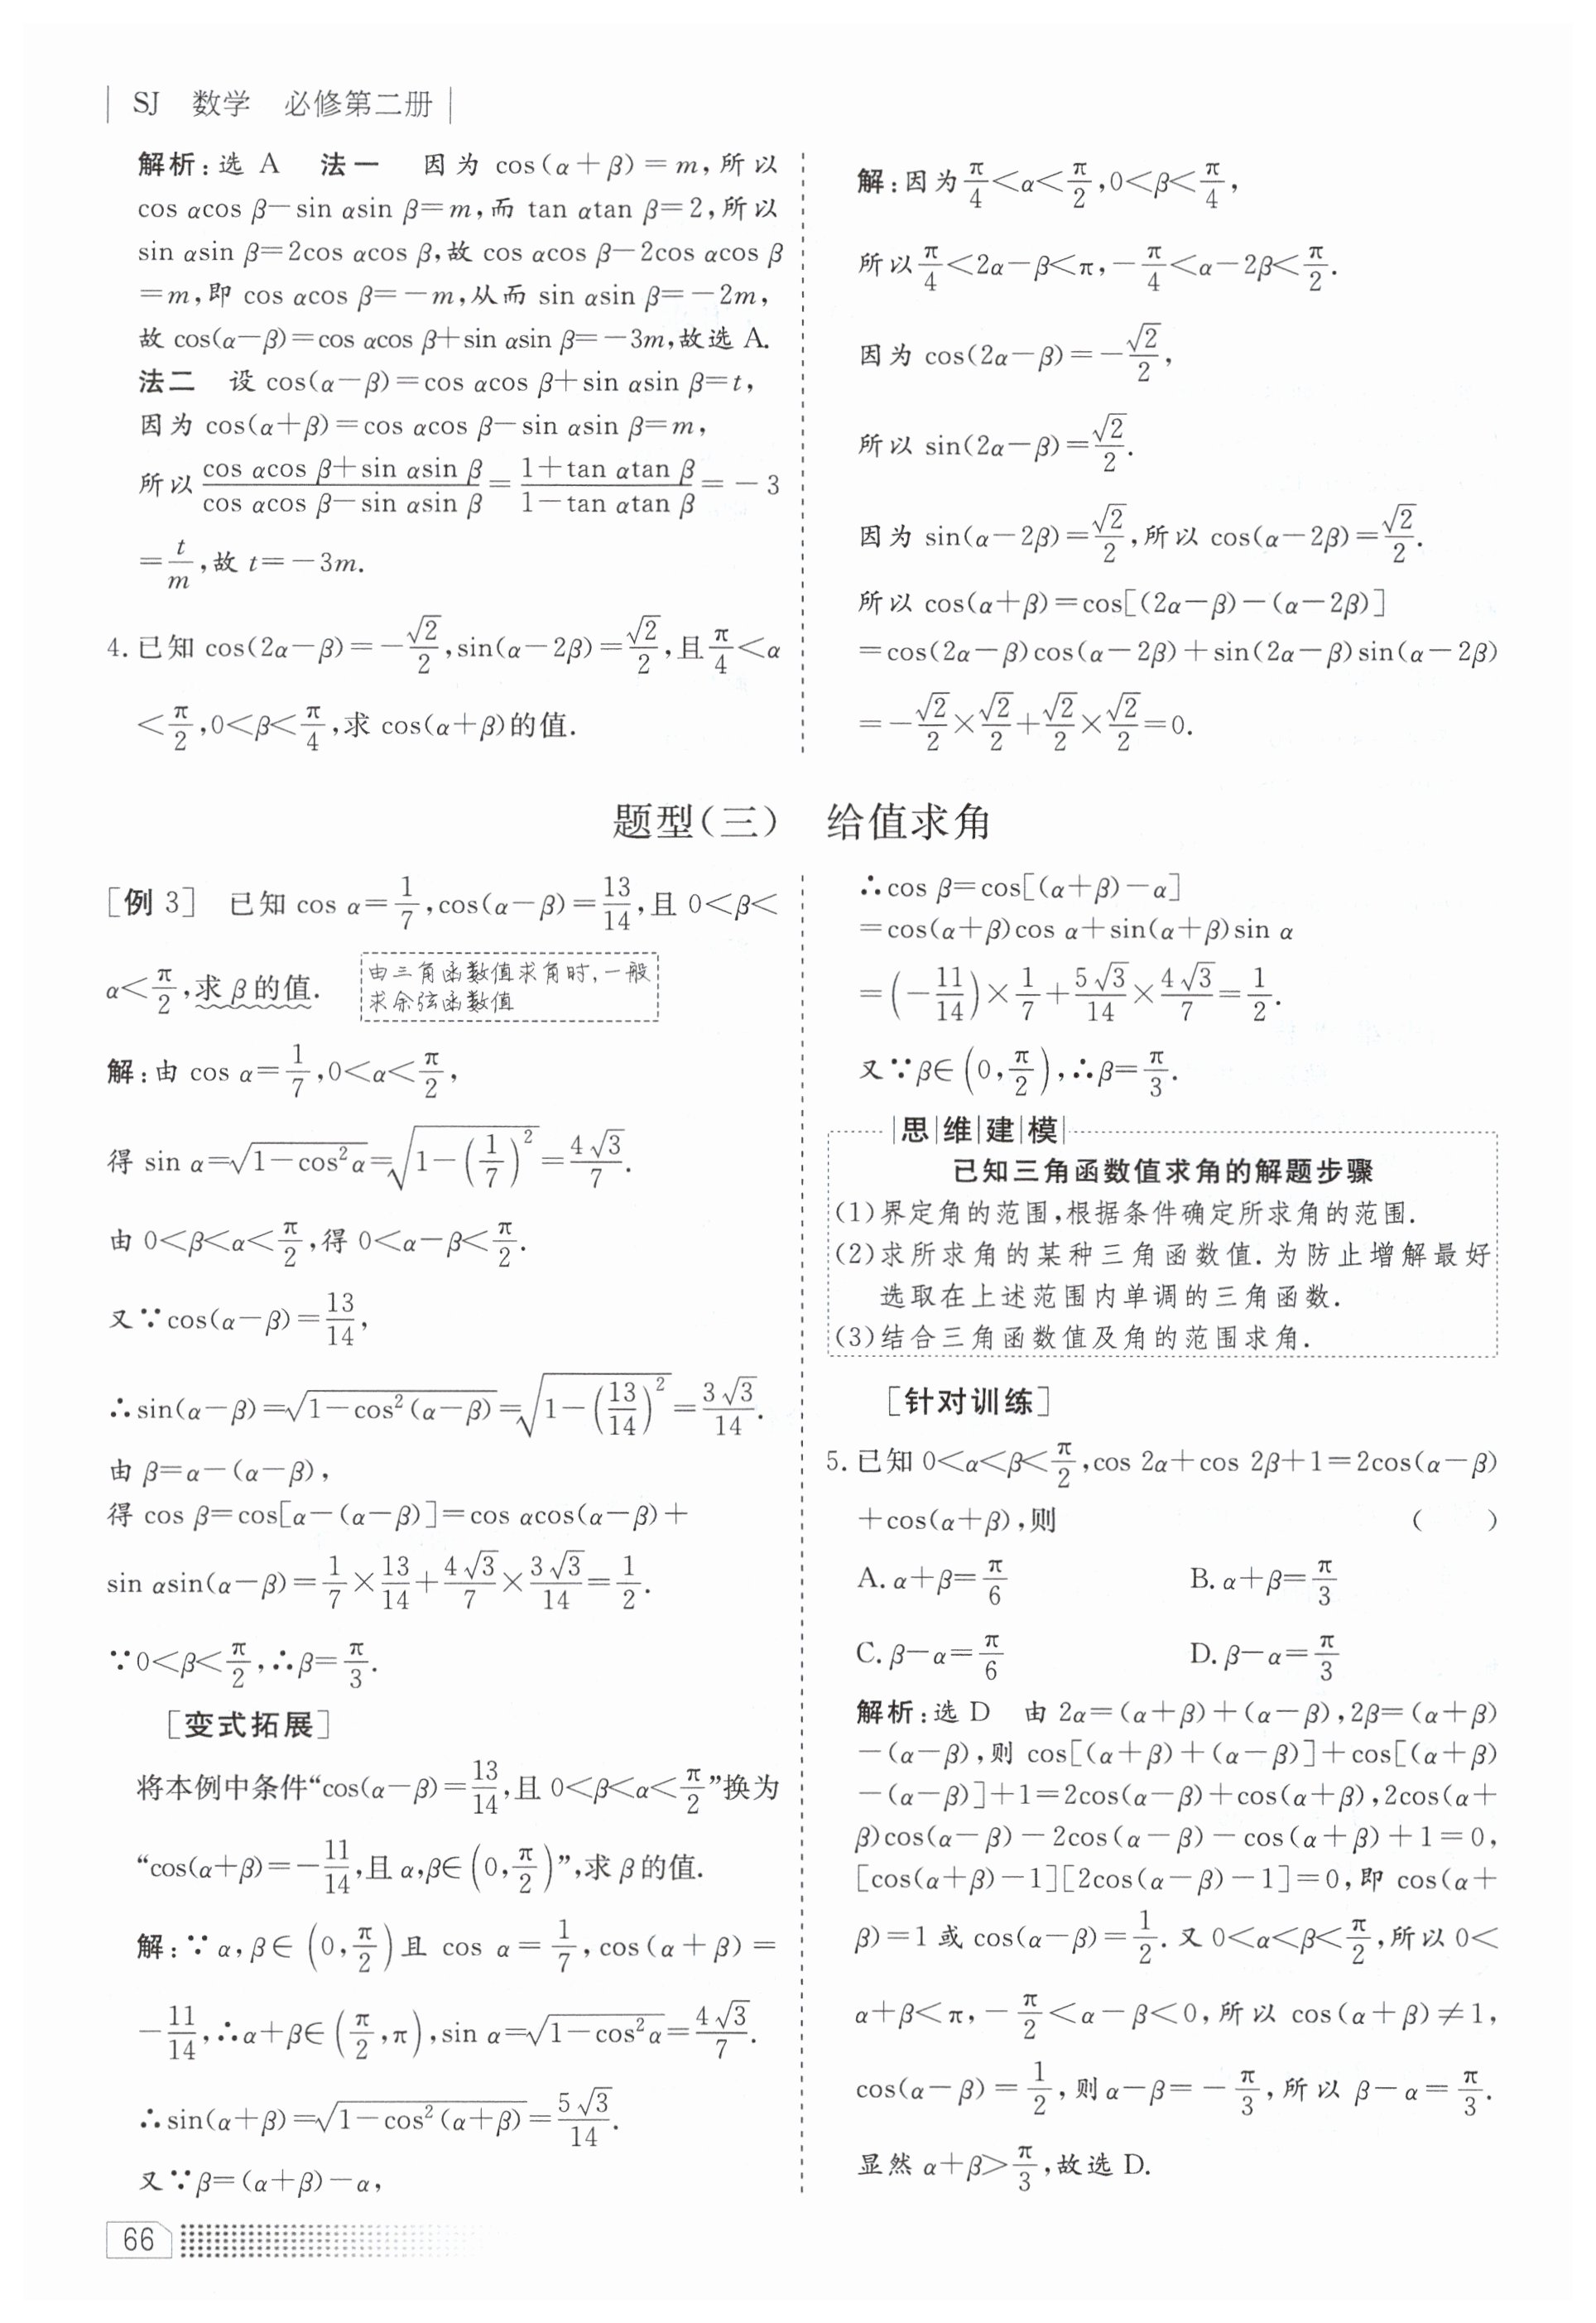 SJ 数学 必修第二册
解析:选 A 法一 因为 cos(α+β)=m,所以
cos αcos β-sin αsin β=m,而 tan αtan β=2,所以
sin αsin β=2cos αcos β,故 cos αcos β-2cos αcos β
=m,即 cos αcos β=-m,从而 sin αsin β=-2m,
故 cos(α-β)=cos αcos β+sin αsin β=-3m,故选 A.
法二 设 cos(α-β)=cos αcos β+sin αsin β=t,
因为 cos(α+β)=cos αcos β-sin αsin β=m,
所以 (cos αcos β+sin αsin β)/(cos αcos β-sin αsin β)=(1+tan αtan β)/(1-tan αtan β)=-3
=t/m,故 t=-3m.
4.已知 cos(2α-β)=-√2/2,sin(α-2β)=√2/2,且 π/4<α
<π/2,0<β<π/4,求 cos(α+β)的值.
解:因为 π/4<α<π/2,0<β<π/4,
所以 π/4<2α-β<π,-π/4<α-2β<π/2.
因为 cos(2α-β)=-√2/2,
所以 sin(2α-β)=√2/2.
因为 sin(α-2β)=√2/2,所以 cos(α-2β)=√2/2.
所以 cos(α+β)=cos[(2α-β)-(α-2β)]
=cos(2α-β)cos(α-2β)+sin(2α-β)sin(α-2β)
=-√2/2×√2/2+√2/2×√2/2=0.
题型(三) 给值求角
[例 3] 已知 cos α=1/7,cos(α-β)=13/14,且 0<β<
α<π/2,求 β的值.
由三角函数值求角时,一般
求余弦函数值
解:由 cos α=1/7,0<α<π/2,
得 sin α=√(1-cos²α)=√(1-(1/7)²)=4√3/7.
由 0<β<α<π/2,得 0<α-β<π/2.
又∵cos(α-β)=13/14,
∴sin(α-β)=√(1-cos²(α-β))=√(1-(13/14)²)=3√3/14.
由 β=α-(α-β),
得 cos β=cos[α-(α-β)]=cos αcos(α-β)+
sin αsin(α-β)=1/7×13/14+4√3/7×3√3/14=1/2.
∵0<β<π/2,∴β=π/3.
[变式拓展]
将本例中条件“cos(α-β)=13/14,且 0<β<α<π/2”换为
“cos(α+β)=-11/14,且 α,β∈(0,π/2)”,求 β的值.
解:∵α,β∈(0,π/2)且 cos α=1/7,cos(α+β)=
-11/14,∴α+β∈(π/2,π),sin α=√(1-cos²α)=4√3/7.
∴sin(α+β)=√(1-cos²(α+β))=5√3/14.
又∵β=(α+β)-α,
∴cos β=cos[(α+β)-α]
=cos(α+β)cos α+sin(α+β)sin α
=(-11/14)×1/7+5√3/14×4√3/7=1/2.
又∵β∈(0,π/2),∴β=π/3.
思|维|建|模
已知三角函数值求角的解题步骤
(1)界定角的范围,根据条件确定所求角的范围.
(2)求所求角的某种三角函数值.为防止增解最好
选取在上述范围内单调的三角函数.
(3)结合三角函数值及角的范围求角.
[针对训练]
5.已知 0<α<β<π/2,cos 2α+cos 2β+1=2cos(α-β)
+cos(α+β),则 ( )
A.α+β=π/6 B.α+β=π/3
C.β-α=π/6 D.β-α=π/3
解析:选 D 由 2α=(α+β)+(α-β),2β=(α+β)
-(α-β),则 cos[(α+β)+(α-β)]+cos[(α+β)
-(α-β)]+1=2cos(α-β)+cos(α+β),2cos(α+
β)cos(α-β)-2cos(α-β)-cos(α+β)+1=0,
[cos(α+β)-1][2cos(α-β)-1]=0,即 cos(α+
β)=1 或 cos(α-β)=1/2.又 0<α<β<π/2,所以 0<
α+β<π,-π/2<α-β<0,所以 cos(α+β)≠1,
cos(α-β)=1/2,则 α-β=-π/3,所以 β-α=π/3.
显然 α+β>π/3,故选 D.
66